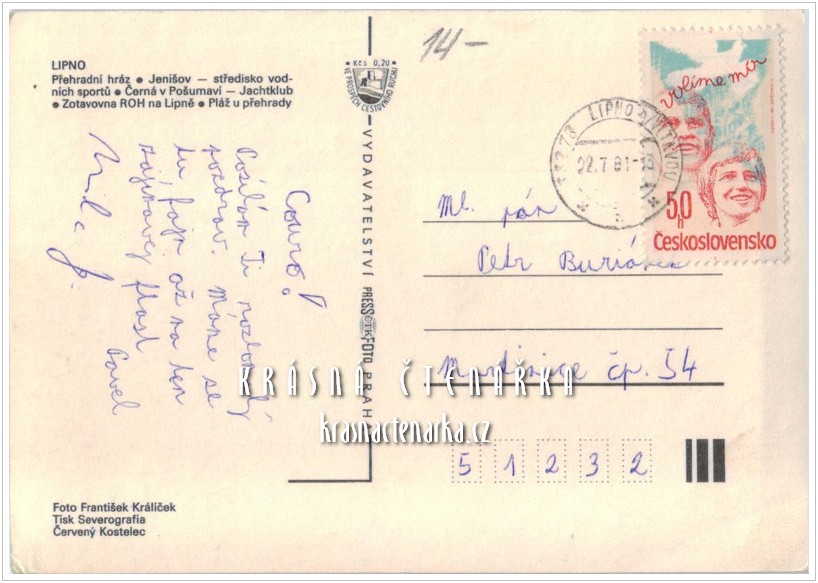 LIPNO
Přehradní hráz ● Jenišov — středisko vod-
ních sportů ● Černá v Pošumaví — Jachtklub
● Zotavovna ROH na Lipně ● Pláž u přehrady
14-
Kčs 0,20
VE PROSPĚCH CESTOVNÍHO RUCHU
VYDAVATELSTVÍ PRESSFOTO PRAHA
382 78 LIPNO N/VLTAVOU
22.7.81-15
volíme mír
50 h
Československo
Couro!
Posílám Ti
pozdrav. Máme se
tu fajn až na ten
zájmovej
Pavel
Ml. pán
Petr Burián
čp. 54
KRÁSNÁ ČTENÁŘKA
krasnactenarka.cz
5 1 2 3 2
Foto František Králíček
Tisk Severografia
Červený Kostelec